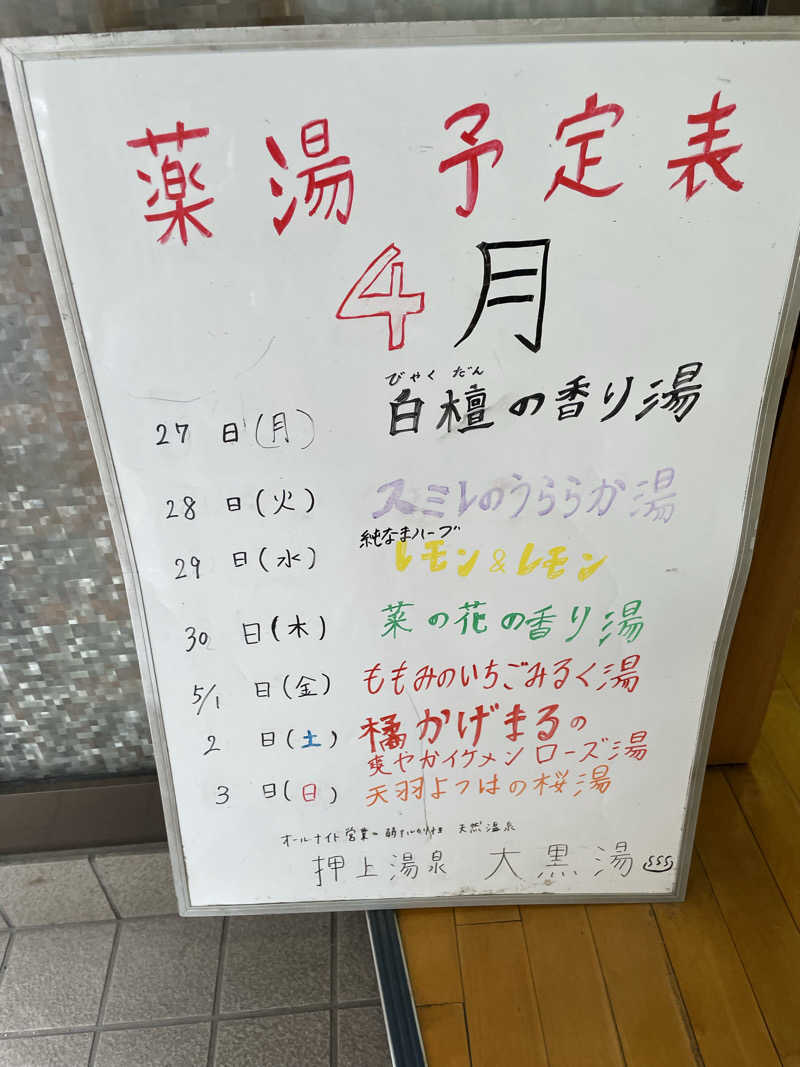 薬湯 予定表
4月
びゃくだん
27日(月) 白檀の香り湯
28日(火) スミレのうららか湯
純なまハーブ
29日(水) レモン&レモン
30日(木) 菜の花の香り湯
5/1日(金) ももみのいちごみるく湯
2日(土) 橘かげまるの
爽やかイケメンローズ湯
3日(日) 天羽よつはの桜湯
オールナイト営業 天然温泉
押上温泉 大黒湯